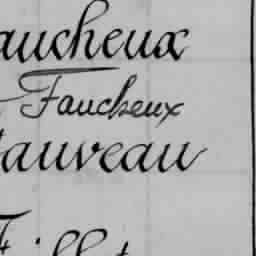 aucheux
Faucheux
auveau